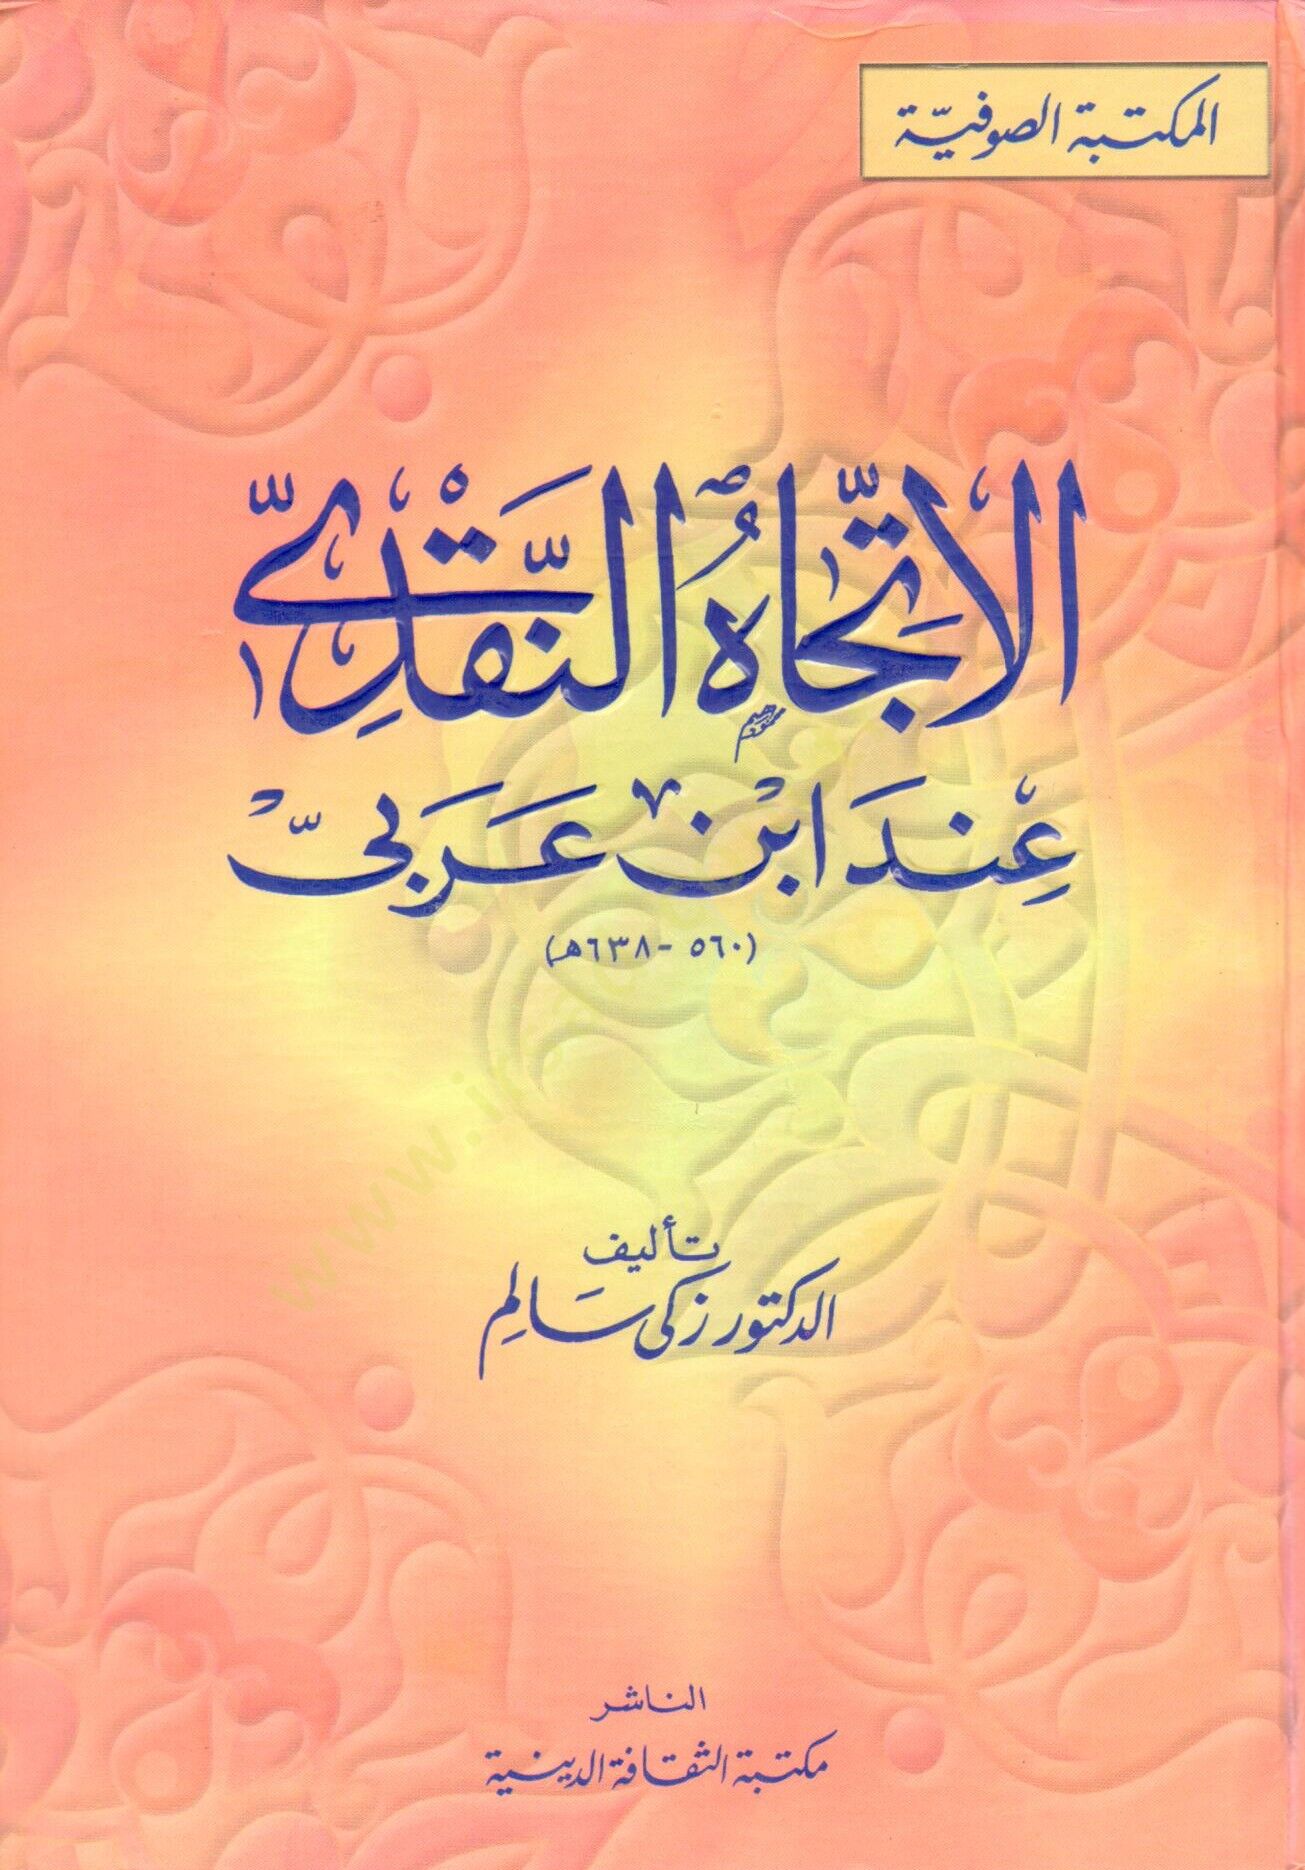 المكتبة الصوفيّة
الاتِّجَاهُ النَّقْدِيّ
عِنْدَ ابْن عَرَبيّ
(٥٦٠ - ٦٣٨هـ)
تأليف
الدكتور زكى سَالِم
الناشر
مكتبة الثقافة الدينية